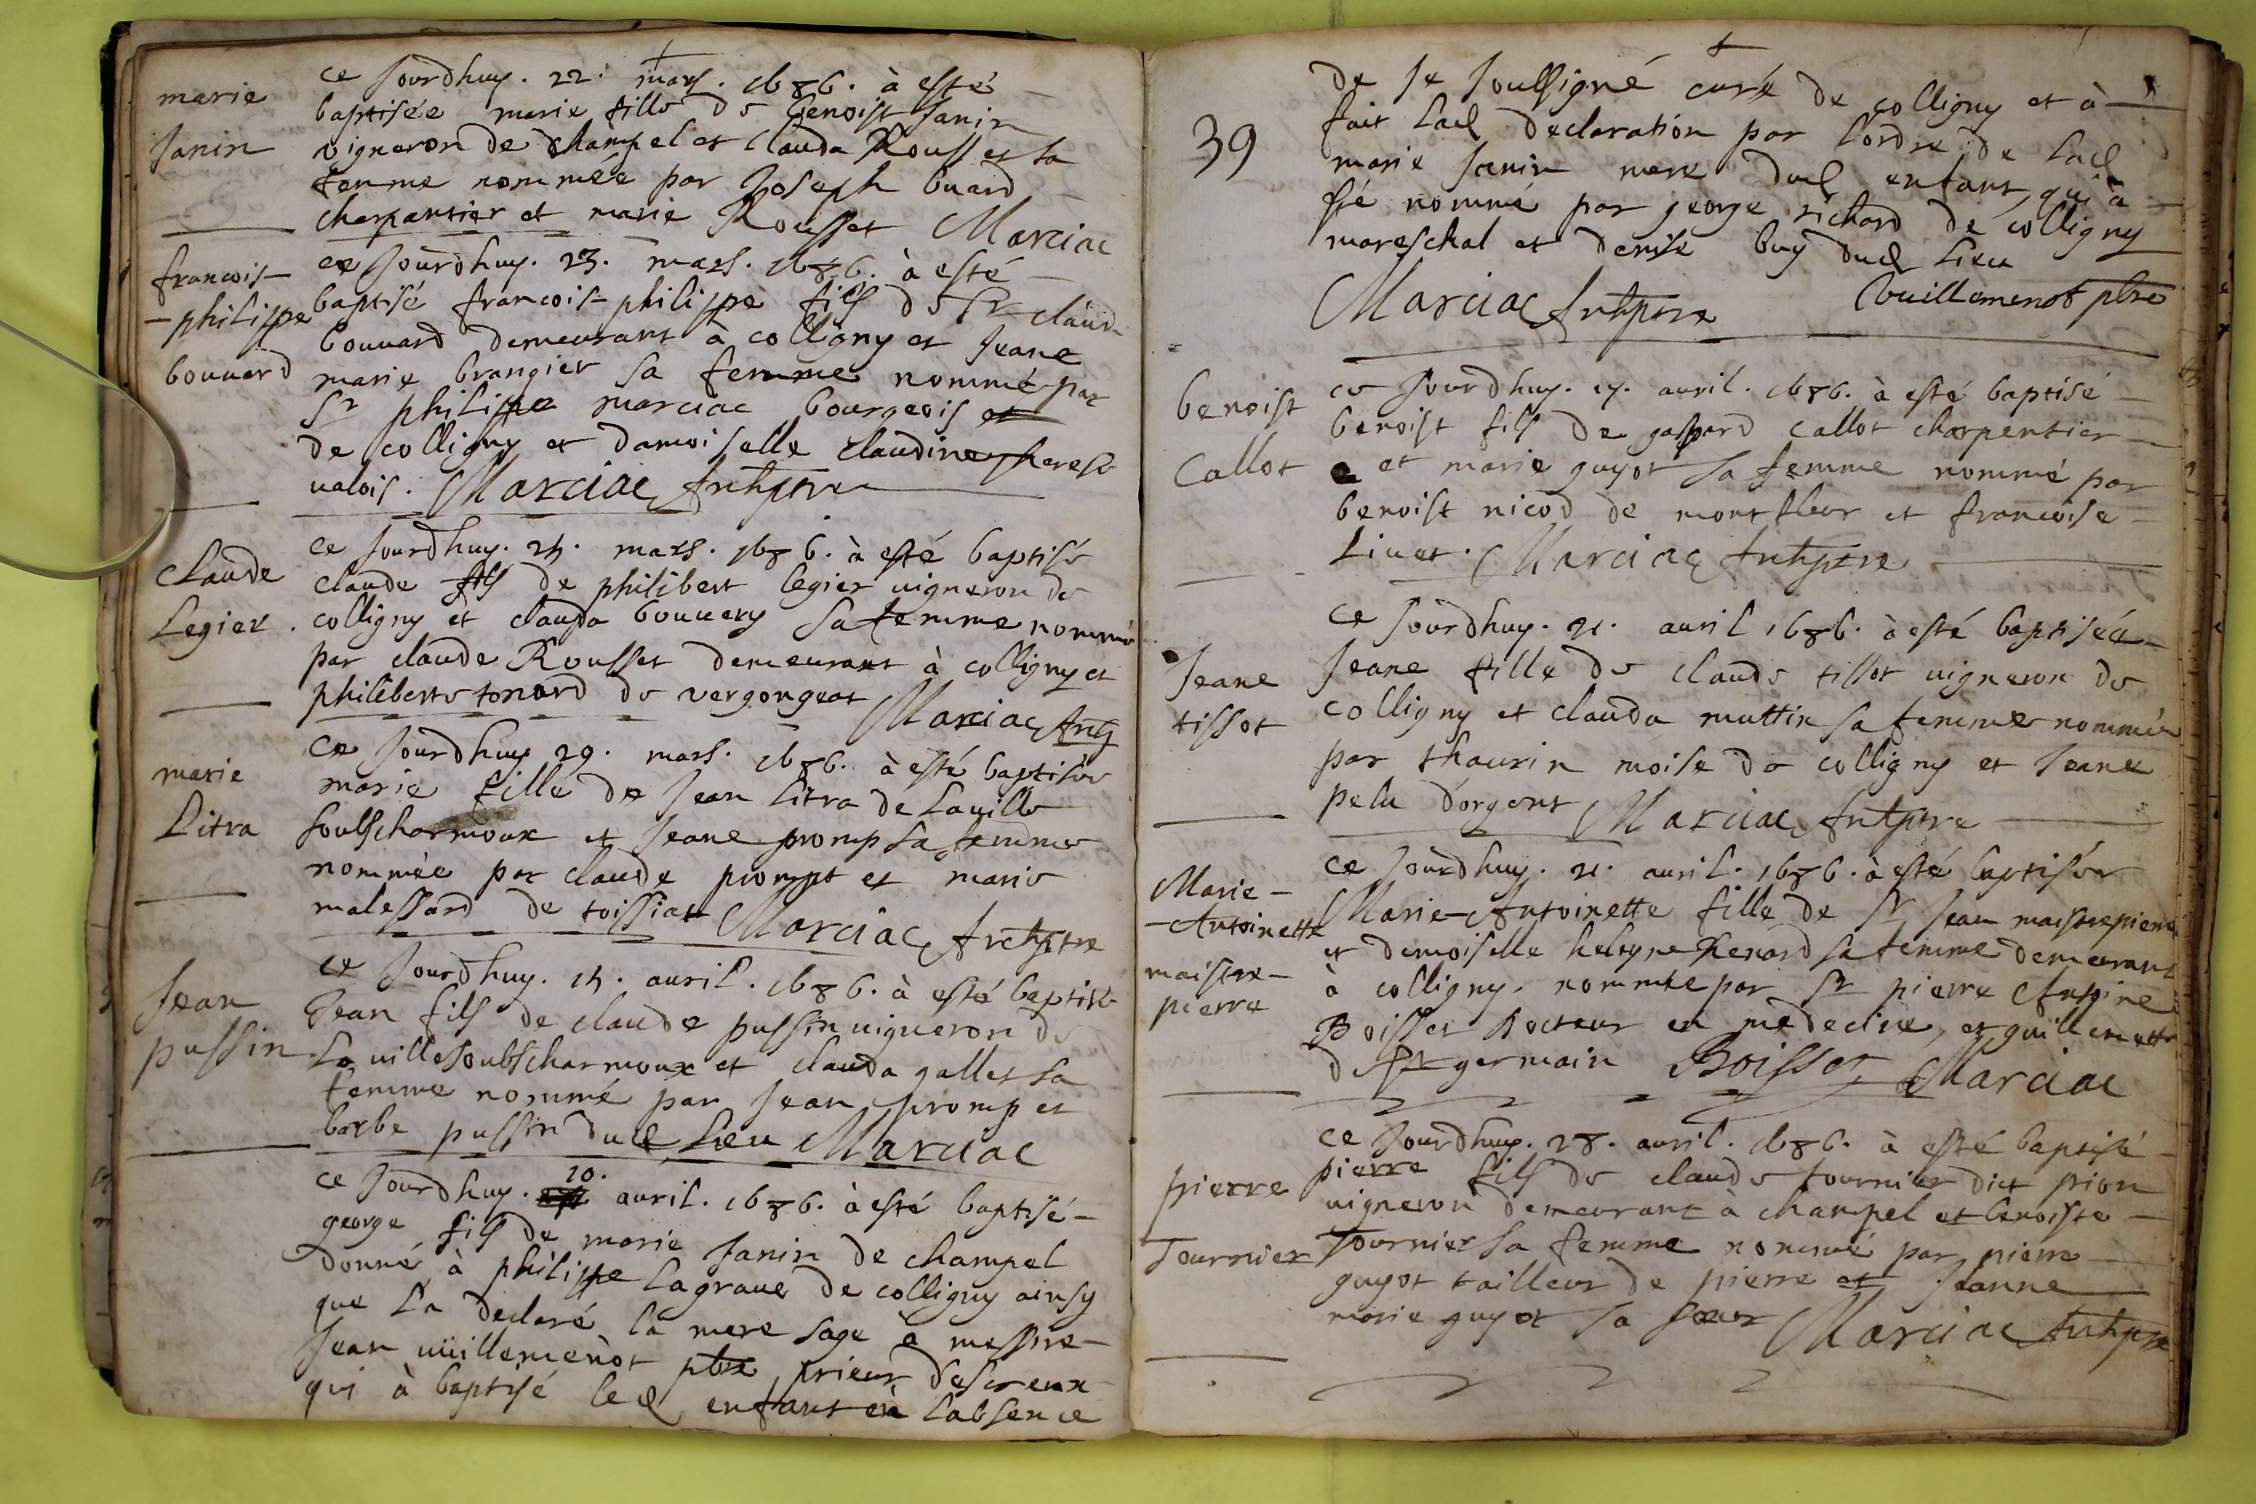 ce Jourdhuy. 22. mars. 1686. à esté
marie
baptisée marie fille de benoist Janin
Janin
vigneron de champel et Clauda Rousset sa
femme nommée par Joseph buard
charpantier et marie Rousset Marciac
ce Jourdhuy. 23. mars. 1686. à esté
francois-
-philippe
bouuard
baptisé francois-philippe fils de Sr claude
bouuard demeurant à colligny et Jeane
marie brangier sa femme nommé par
Sr philippe marciac bourgeois et
de colligny et damoiselle claudine therese
ualois. Marciac Archiptre
Claude
Legier.
ce Jourdhuy. 24. mars. 1686. à esté baptisé
claude fils de philibert legier uigneron de
colligny et clauda bouuery sa femme nommé
par claude Rousset demeurant à colligny et
philiberte tonard de vergongeat Marciac Arch
marie
Litra
ce Jourdhuy 29. mars. 1686. à esté baptisée
marie fille de Jean Litra de Lauille
soubscharmoux et Jeane promp sa femme
nommée par claude prompt et marie
malessard de toissiat Marciac Archiptre
Jean
pussin
ce Jourdhuy. 14. auril. 1686. à esté baptisé
Jean fils de claude pussin uigneron de
La uille soubscharmoux et clauda gallet sa
femme nommé par Jean promp et
barbe pussin dud Lieu Marciac
ce Jourdhuy. 10. auril. 1686. à esté baptisé-
george fils de marie Janin de champel
donné à philippe Lagraue de colligny ainsy
que La declaré la mere sage a messire-
Jean uüillemenot ptre prieur descreux
qui à baptisé led enfant en Labsence
39
de Je soulsigné curé de colligny et à
fait Lad declaration par Lordre de Lad
marie Janin mere dud enfant, qui a
sté nommé par george richard de colligny
mareschal et denise buy dud Lieu
Marciac Archiptre Vuillemenot ptre
benoist
Callot
ce Jourdhuy. 17. auril. 1686. à esté baptisé-
benoist fils de gaspard callot charpentier
et marie guyot sa femme nommé par
benoist nicod de montfleur et francoise-
Liuet. Marciac Archiptre
Jeane
tissot
ce Jourdhuy. 21. auril 1686. à esté baptisée
Jeane fille de claude tissot uigneron de
colligny et clauda muttin sa femme nommée
par thaurin moise de colligny et Jeane
pelu dorgent Marciac Archiptre
Marie-
-Antoinette
maistre-
pierre
ce Jourdhuy. 21. auril. 1686. à esté baptisée
Marie-Antoinette fille de Sr Jean maistrepierre
et demoiselle heleyne Renard sa femme demeurant
à colligny. nommée par Sr pierre Antoine
Boisset Docteur en medecine, et guillemette
d St germain Boisset Marciac
pierre
Tournier
ce Jourdhuy. 28. auril. 1686. à esté baptisé-
pierre fils de claude tournier dict pion
uigneron demeurant à champel et benoiste-
Tournier sa femme nommé par pierre
guyot tailleur de pierre et Jeanne
marie guyot sa soeur Marciac Archiptre